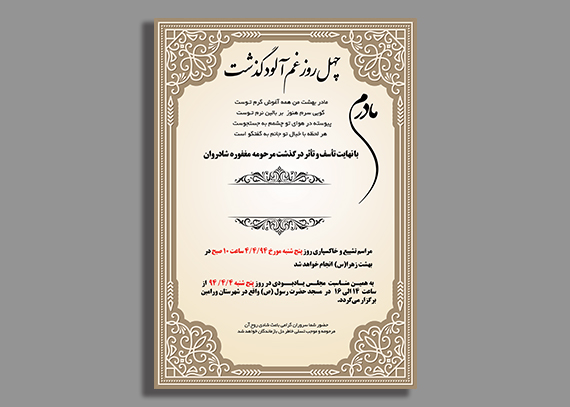 چهل روز غم آلود گذشت
مادرم
مادر بهشت من همه آغوش گرم توست
گویی سرم هنوز بر بالین نرم توست
پیوسته در هوای تو چشمم به جستجوست
هر لحظه با خیال تو جانم به گفتگو است
با نهایت تأسف و تأثر درگذشت مرحومه مغفوره شادروان
مراسم تشییع و خاکسپاری روز پنج شنبه مورخ ۹۴/۴/۴ ساعت ۱۰ صبح در
بهشت زهرا(س) انجام خواهد شد
به همین مناسبت مجلس یادبودی در روز پنج شنبه ۹۴/۴/۴ از
ساعت ۱۴ الی ۱۶ در مسجد حضرت رسول (ص) واقع در شهرستان ورامین
برگزار می‌گردد.
حضور شما سروران گرامی باعث شادی روح آن
مرحومه و موجب تسلی خاطر دل بازماندگان خواهد شد